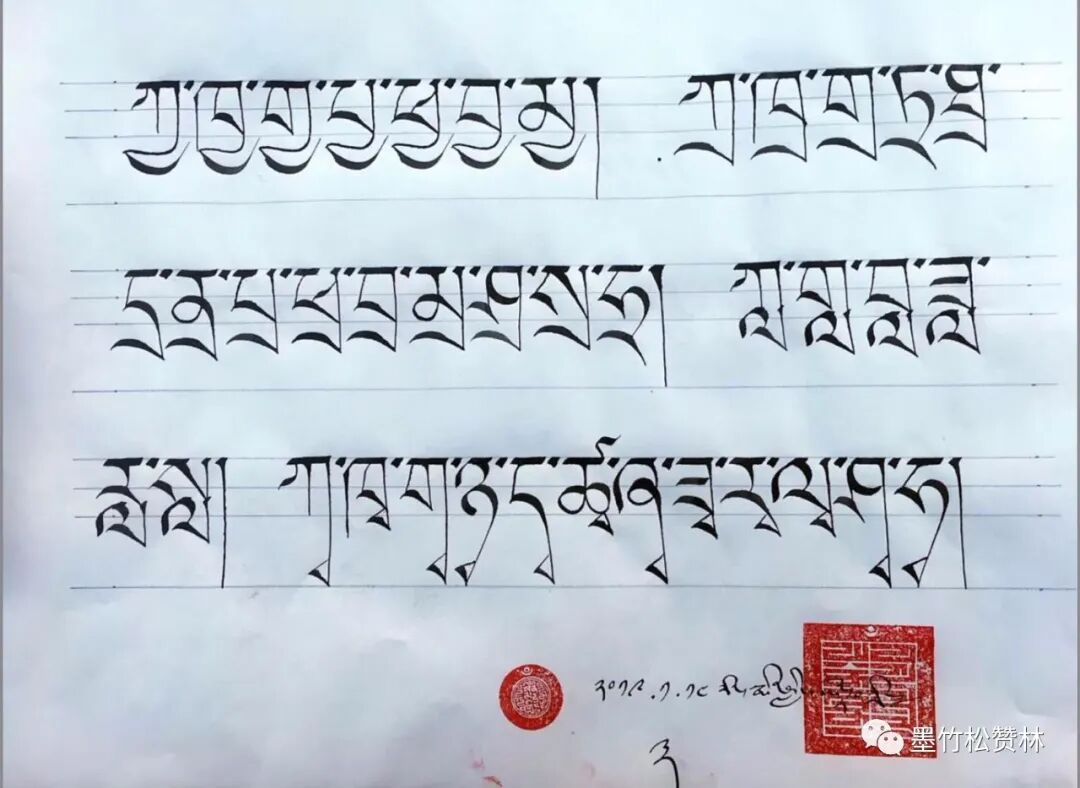 ཀྱ་ཁྱ་གྱ་པྱ་ཕྱ་བྱ་མྱ། ཀྲ་ཁྲ་གྲ་ཏྲ་ཐྲ་
དྲ་ནྲ་པྲ་ཕྲ་བྲ་མྲ་ཤྲ་སྲ་ཧྲ། ཀླ་གླ་བླ་ཟླ་
རླ་སླ། ཀྭ་ཁྭ་གྭ་ཉྭ་དྭ་ཚྭ་ཞྭ་ཟྭ་རྭ་ལྭ་ཤྭ་ཧྭ།
墨竹松赞林